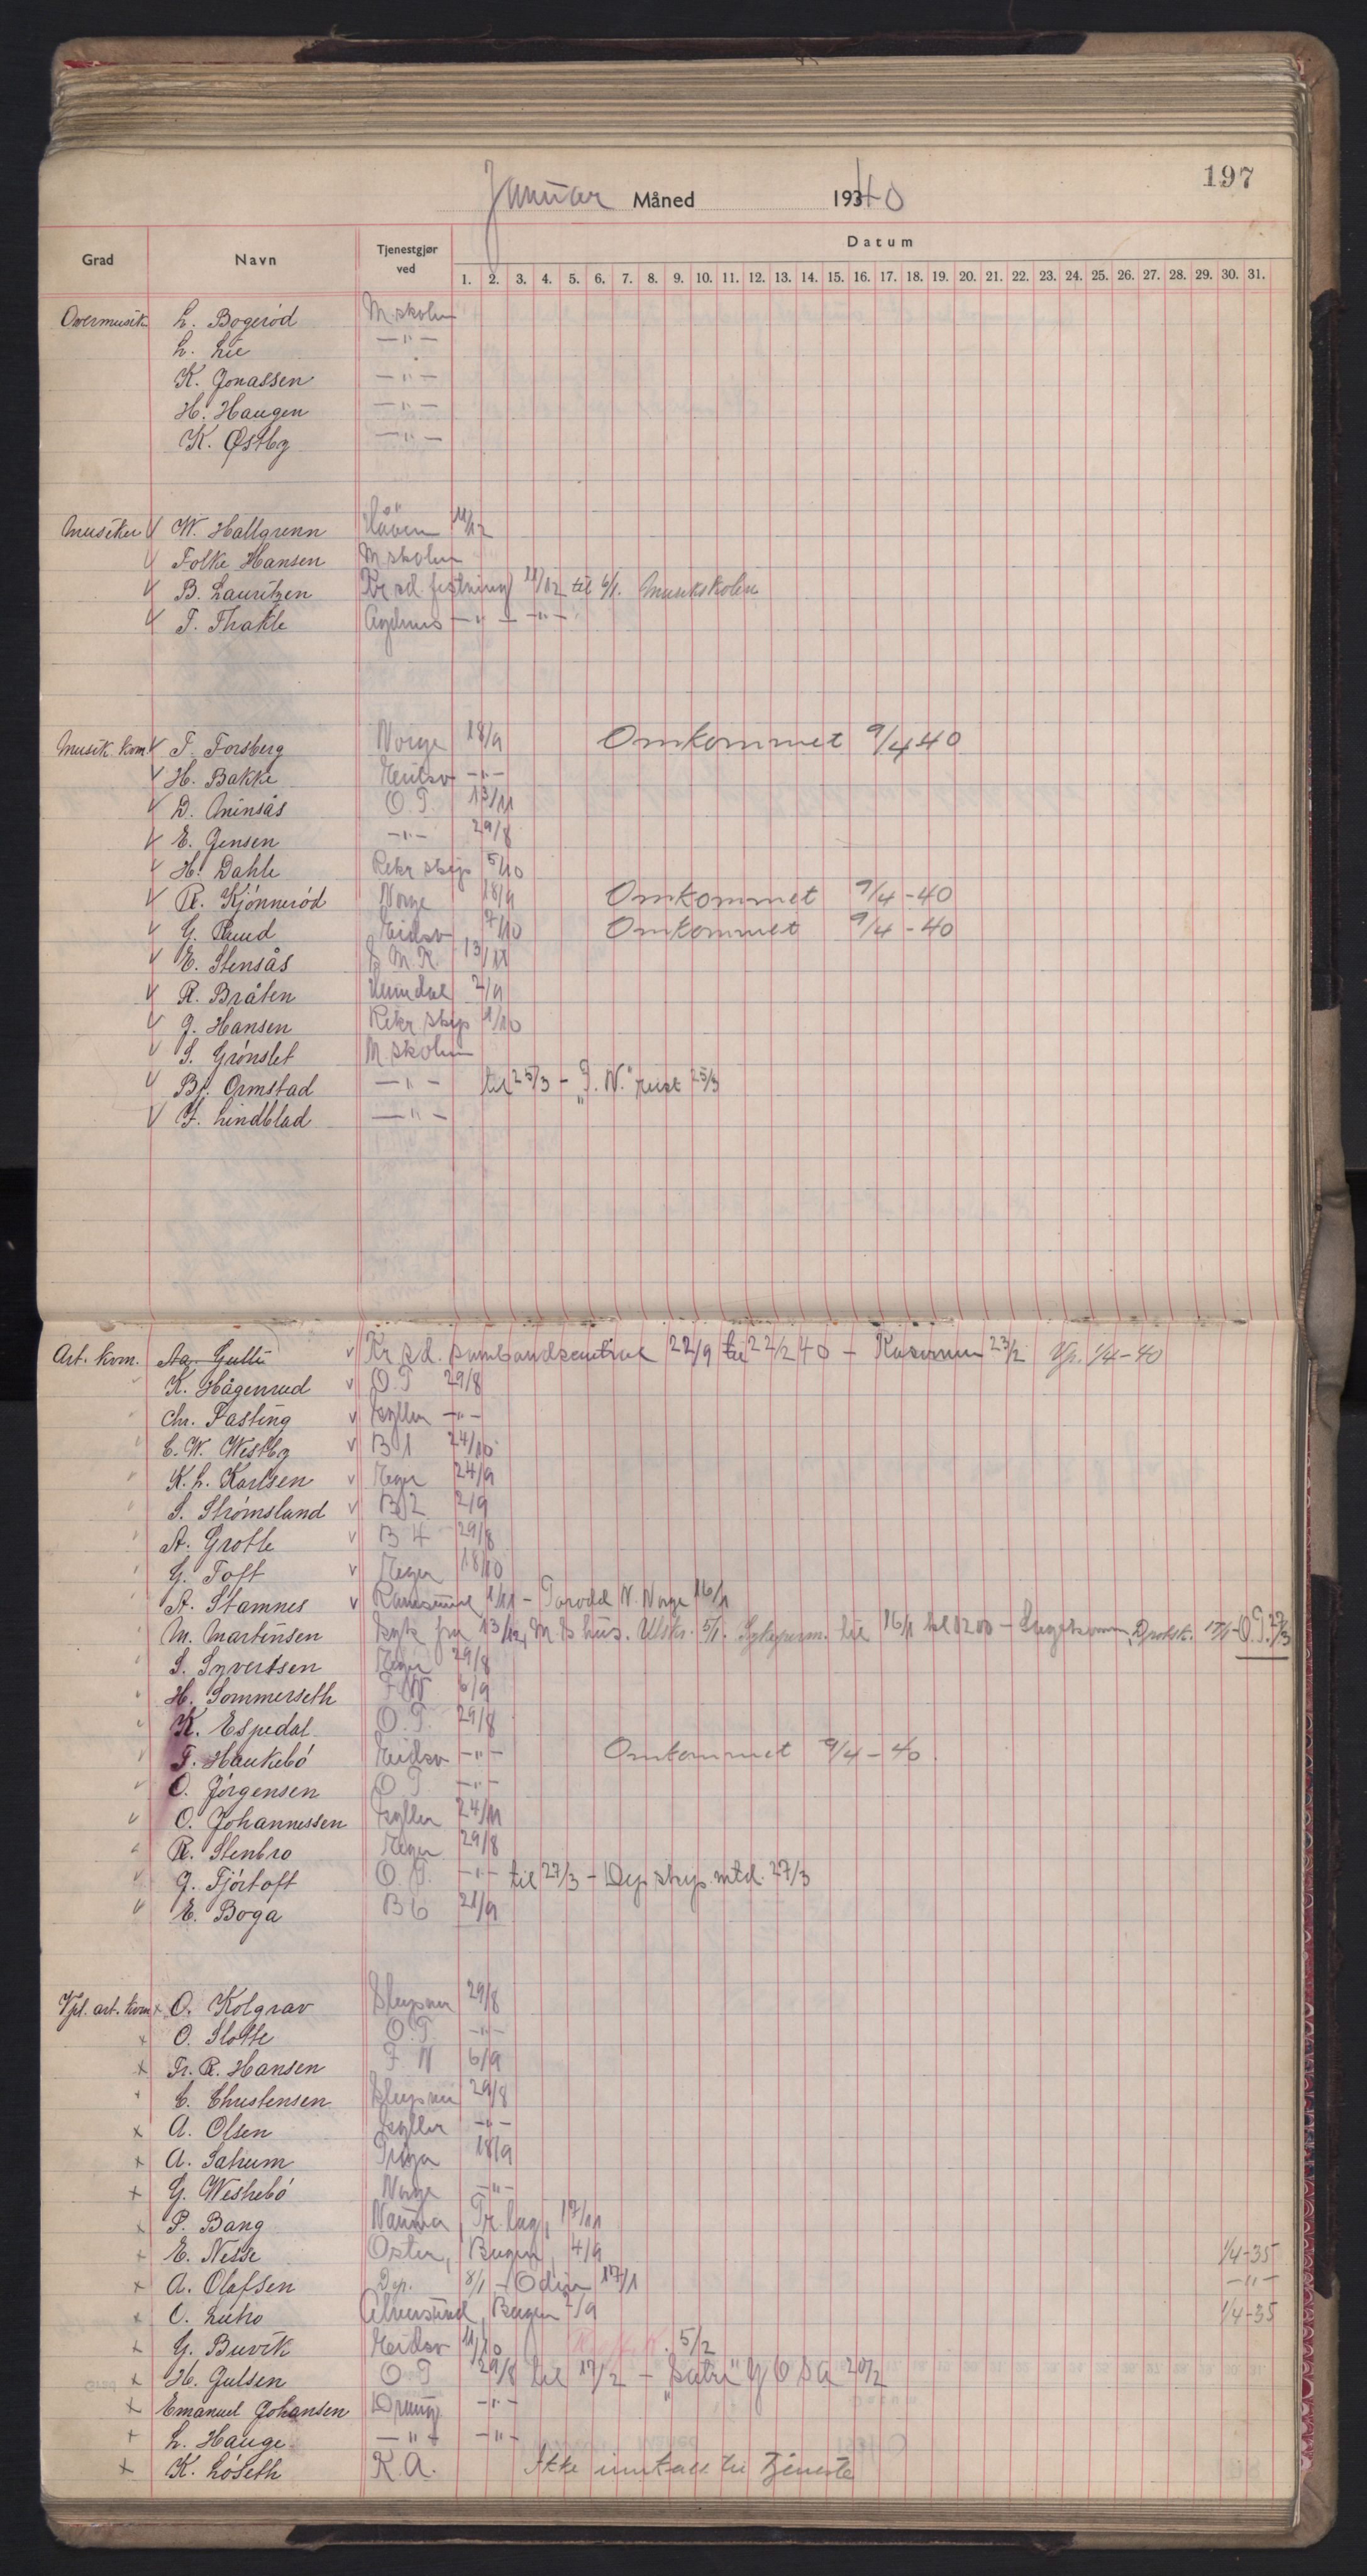 197
Januar Måned 1940
Grad Navn Tjenestgjør ved Datum
1. 2. 3. 4. 5. 6. 7. 8. 9. 10. 11. 12. 13. 14. 15. 16. 17. 18. 19. 20. 21. 22. 23. 24. 25. 26. 27. 28. 29. 30. 31.
Overmusik L. Bogerød M.skolen
L. Lie —"—
K. Jonassen —"—
H. Haugen —"—
K. Østby —"—
Musiker V W. Hallgrenn
V Folke Hansen M skolen
V B. Lauritzen Kr.sd. festning 11/12 til 6/1. Musikskolen
V T. Thakle —"— —"—
Musik. kom. V T. Forsberg Norge 18/9 Omkommet 9/4 40
V H. Bakke Eidsv —"—
V D. Aninsås O.T. 13/11
V E. Jensen —"— 29/8
V H. Dahle Rekr skip 5/10
V R. Kjønnerød Norge 18/9 Omkommet 9/4 - 40
V G. Ruud Eidsv 7/10 Omkommet 9/4 - 40
V E. Stensås S.M.R. 13/11
V R. Bråten Heimdal 2/9
V J. Hansen Rekr. skip 1/10
V S. Grønslet M. skolen
V Bj. Ormstad —"— til 25/3 - "T. N." 25/3
V F. Lindblad —"—
Art. kvm. Aa. Gulli v Kr sd. sambandsentral 22/9 til 22/2 40 - Kasernen 23/2 Vp. 1/4-40
K. Hågensrud v O.T 29/8
Chr. Fasting v Kyller —"—
C. W. Westby v B 1 24/10
K. L. Karlsen v Æger 24/9
S. Strømsland v B 2 2/9
A. Grotle v B 4 29/8
G. Toft v Æger 18/10
A. Stamnes v Ramsund 1/11 - N. Norge 16/1
M. Martinsen Syk fra 13/12, M. S hus. Utskr. 5/1. Sykeperm. til 16/1 kl 1200 - 17/1 - O.T. 27/3
S. Syvertsen Æger 29/8
H. Sommerseth F N 6/9
K. Espedal O.T. 29/8
T. Haukebø Eidsv —"— Omkommet 9/4 - 40.
O. Jørgensen O T —"—
V O. Johannessen Kyller 24/11
R. Stenbro Æger 29/8
J. Fjørtoft O.T. —"— til 27/3 - Dep skip. mtd. 27/3
V E. Boga B 6 21/9
Vpl. art. kvm x O. Kolgrav Sleipner 29/8
x O. Slotte O.T. —"—
x Fr. R. Hansen F N 6/9
x C. Christensen Sleipner 29/8
x A. Olsen Kyller —"—
x A. Sahum 18/9
x G. Westrebø Norge —"—
x P. Bang Nauma, Tr.lag, 17/11
x E. Nesse Oster, Bergen, 4/9 1/4-35
x A. Olafsen Dep. 8/1 - Odin 17/1 —"—
x O. Lutro Alversund, Bergen 2/9 1/4-35
x G. Buvik Eidsv 11/10 5/2
x H. Gulsen O T 29/8 til 17/2 - "Sætre" 20/2
x Emanuel Johansen Draug —"—
x L. Hauge —"— —"—
x K. Løseth K.A. Ikke innkalt til tjeneste